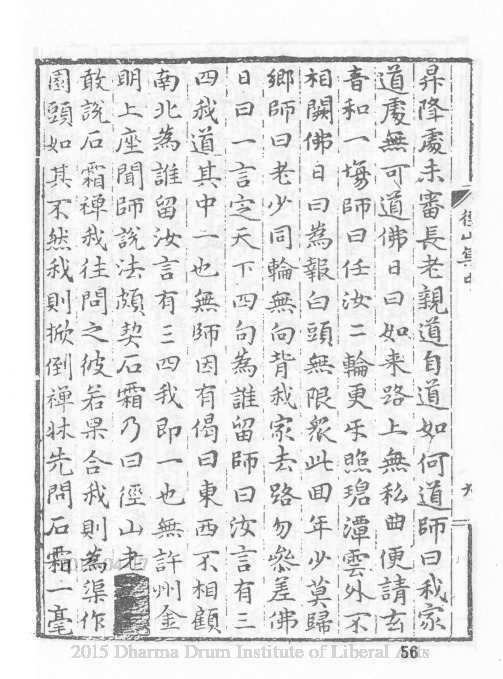 昇降處未審長老親道自道如何道師曰我家
道處無可道佛日曰如来路上無私曲便請玄
音和一塲師曰任汝二輪更㸦照碧潭雲外不
相関佛日曰為報白頭無限衆此回年少莫歸
鄉師曰老少同輪無向背我家去路勿叅差佛
日曰一言定天下四句為誰留師曰汝言有三
四我道其中一也無師因有偈曰東西不相顧
南北為誰留汝言有三四我即一也無許州金
明上座聞師說法頗契石霜乃曰徑山老
敢說石霜禪我往問之彼若果合我則為渠作
園頭如其不然我則掀倒禪牀先問石霜一毫
徑山集中
九
56
2015 Dharma Drum Institute of Liberal Arts